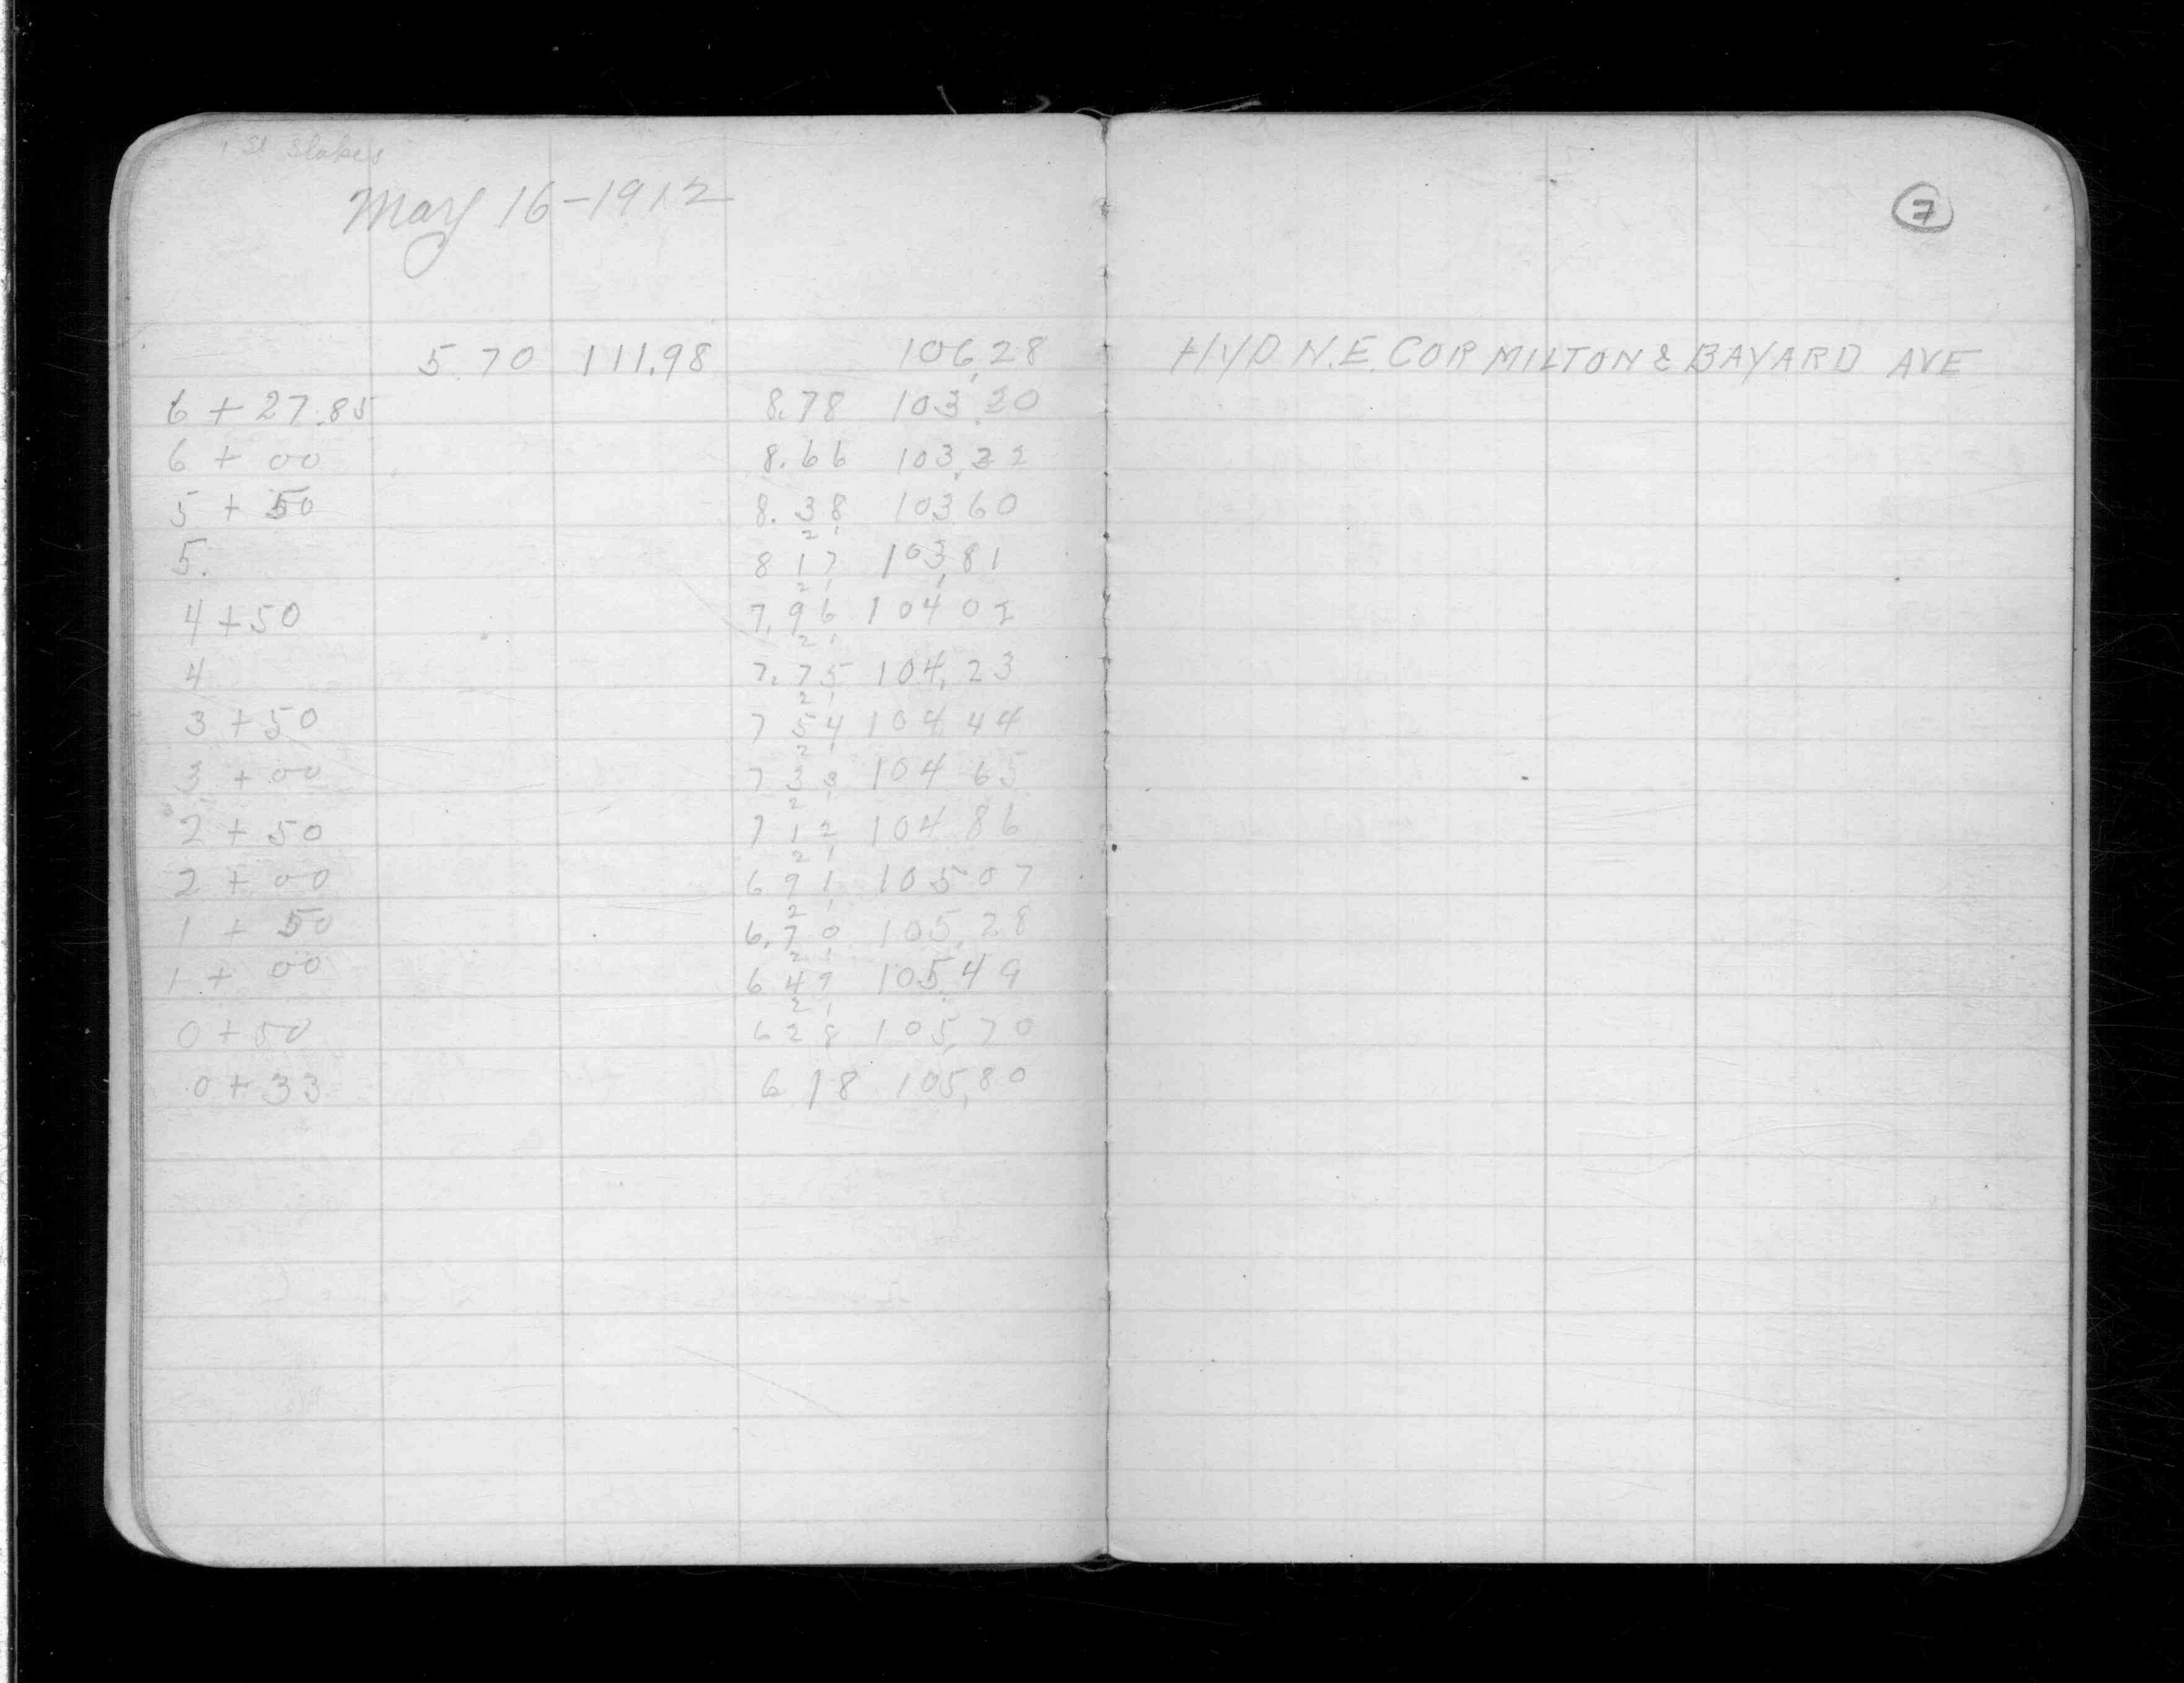 1 St Stakes
May 16-1912
7
5.70 111.98 106.28 HYD N.E. COR MILTON & BAYARD AVE
6 + 27.85 8.78 103.20
6 + 00 8.66 103.32
5 + 50 8.38 103 60
2 1
5. 8 17 103.81
2 1
4 + 50 7.96 104 02
2 1
4 7.75 104.23
2 1
3 + 50 7 54 104 44
2 1
3 + 00 7 33 104 65
2 1
2 + 50 7 12 104 86
2 1
2 + 00 6 91 105 07
2 1
1 + 50 6.70 105.28
2 1
1 + 00 6 49 105.49
2 1
0 + 50 6 28 105.70
0 + 33 6 18 105.80